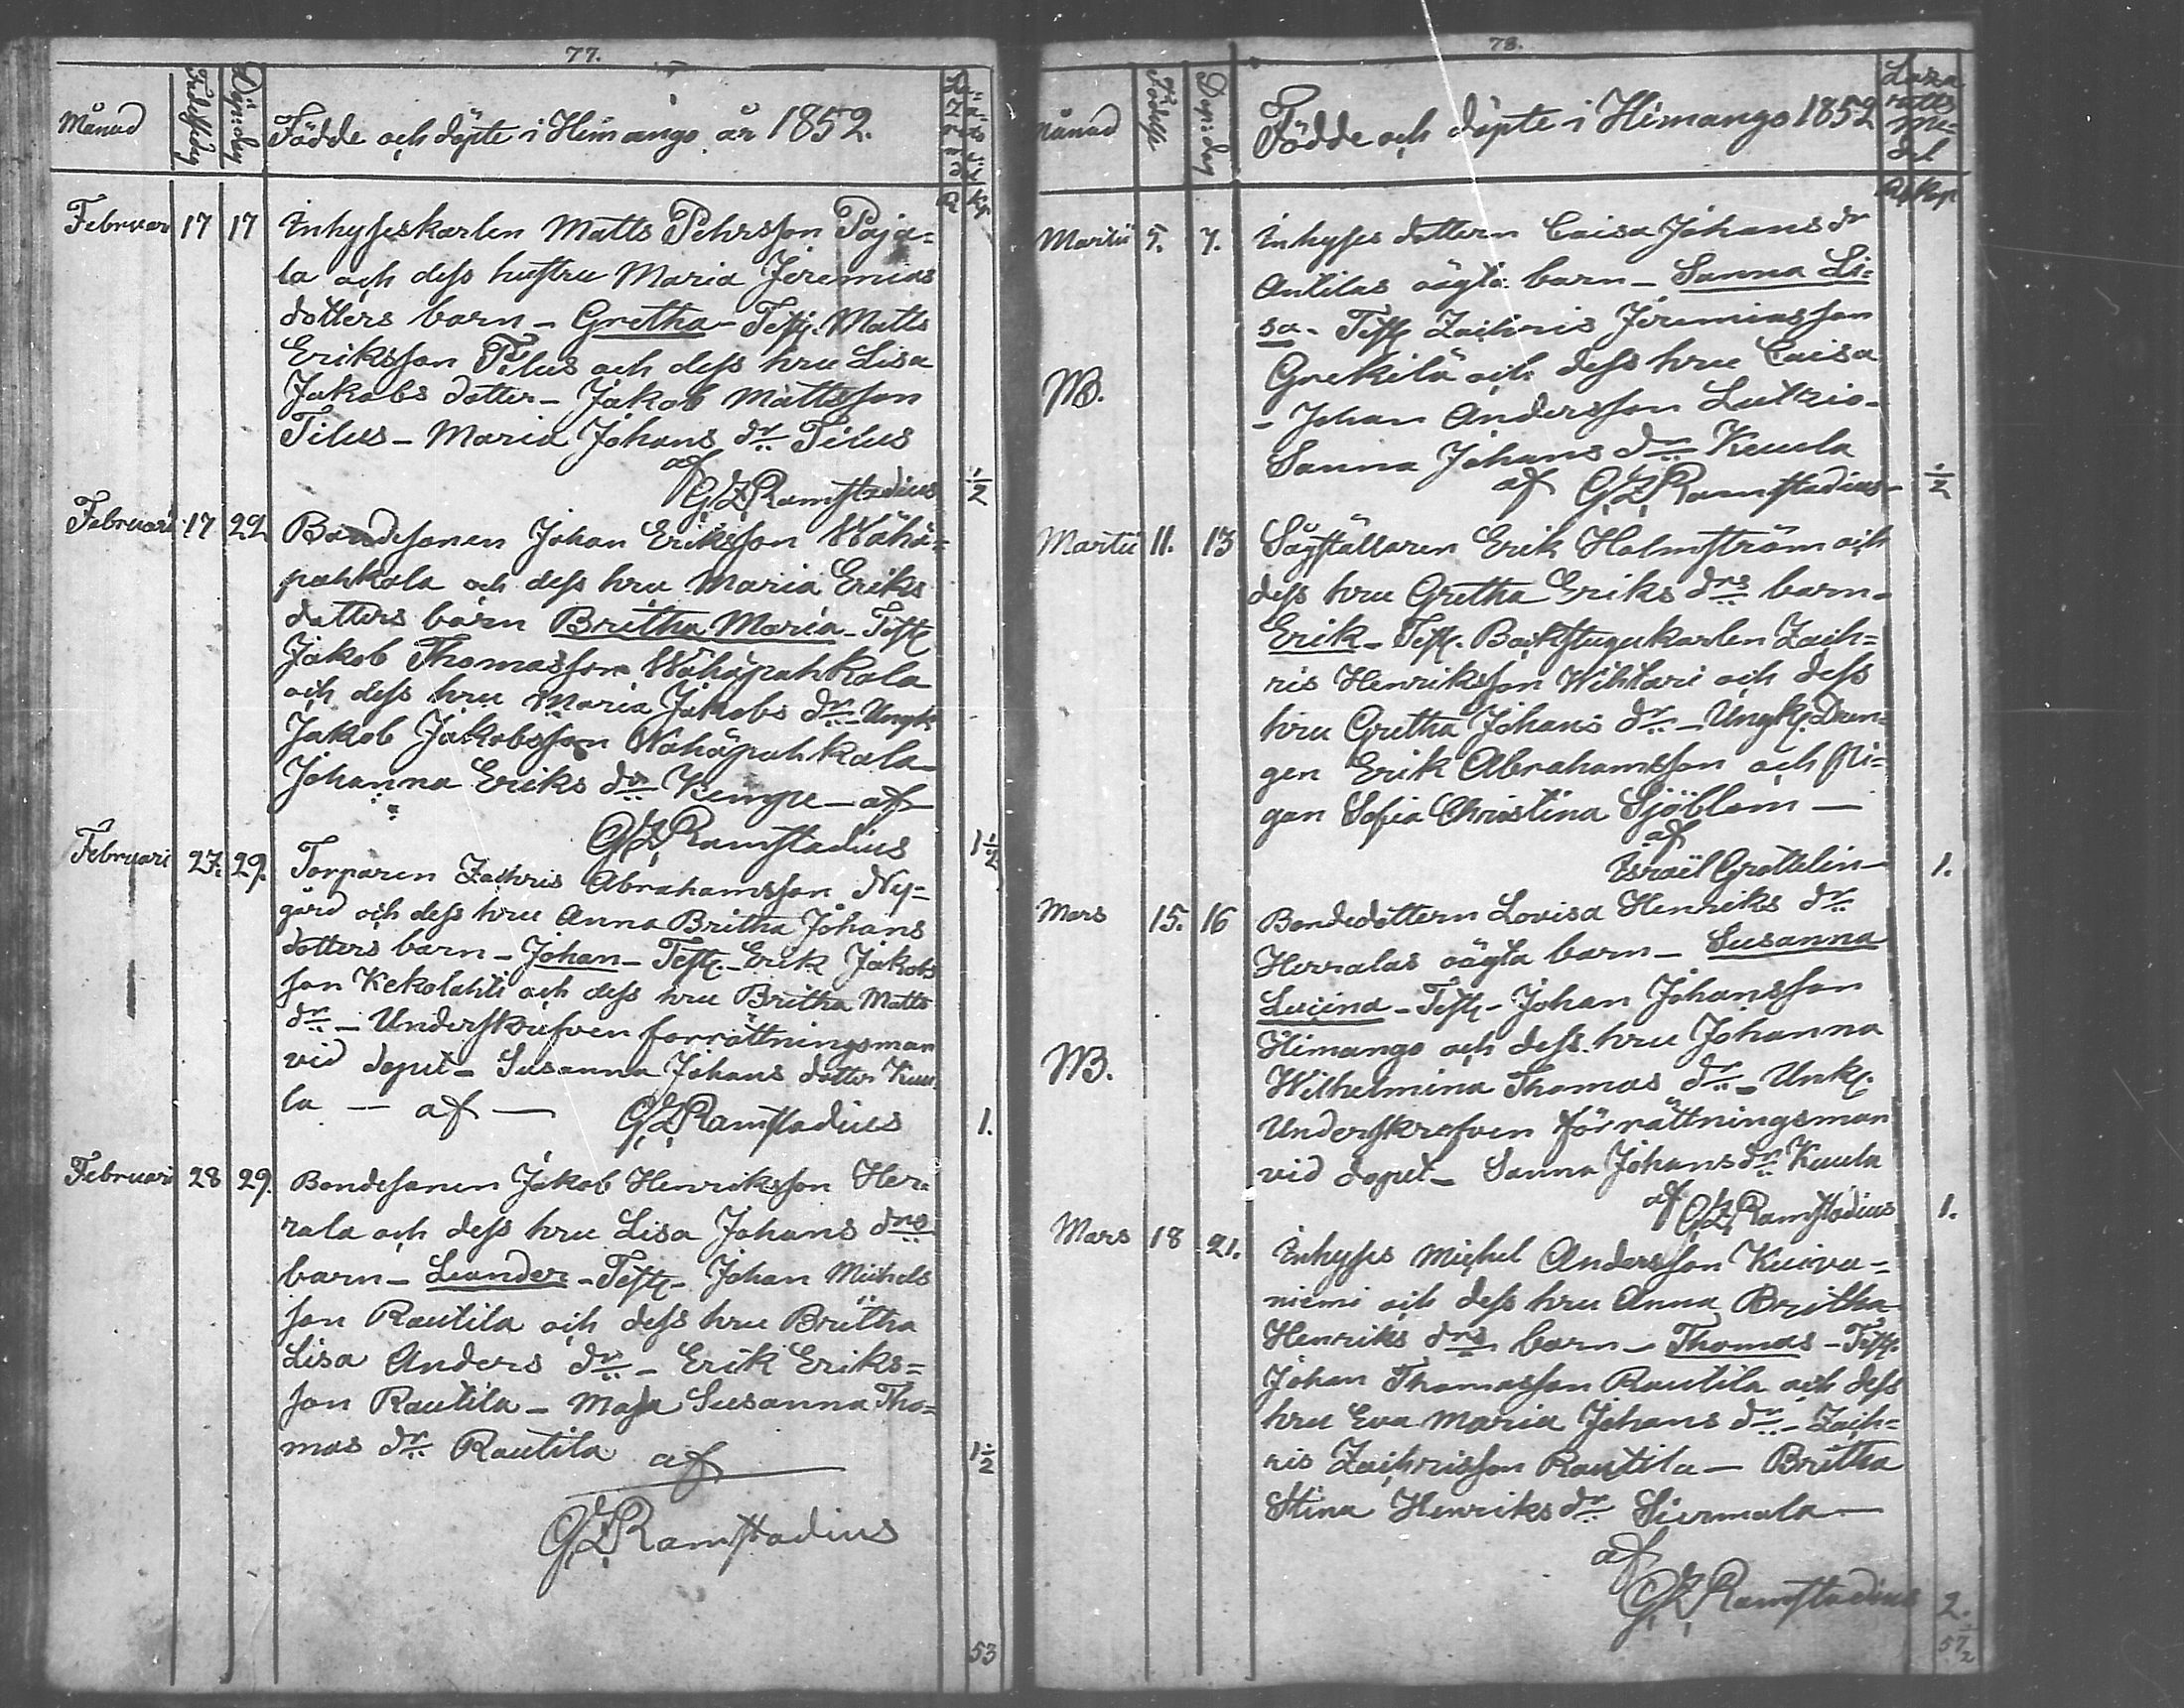 77.
Månad
Födelsedag
Döpsdag
Födde och döpte i Himango år 1852.
R Kp
Februari 17 17 Inhysekarlen Matts Pehrsson Paja=
la och dess hustru Maria Jeremias
dotters barn – Gretha – Test. Matts
Eriksson Tilus och dess hru Lisa
Jakobs dotter – Jakob Mattsson
Tilus – Maria Johans dr Tilus
af
G Z Ramstadius 1/2
Februari 17 22 Bondesonen Johan Eriksson Wähä=
pahkala och dess hru Maria Eriks
dotters barn Britha Maria – Test
Jakob Thomasson Wähäpahkala
och dess hru Maria Jakobs dr – Ungk.
Jakob Jakobsson Wähäpahkala
Johanna Eriks dr Kempe – af
G Z Ramstadius 1 1/2
Februari 27. 29. Torparen Zachris Abrahamsson Ny=
gård och dess hru Anna Britha Johans
dotters barn – Johan – Test. – Erik Jakobs
son Kekolahti och dess hru Britha Matts
dr – Underskrifven forrättningsman
vid doput – Susanna Johans dotter Kuu
la — af — G Z Ramstadius 1.
Februari 28 29. Bondesonen Jakob Henriksson Her=
rala och dess hru Lisa Johans drs
barn – Leander – Test – Johan Michels
son Rautila och dess hru Britha
Lisa Anders dr – Erik Eriks=
son Rautila – Maja Susanna Tho=
mas dr Rautila af 1 1/2
G Z Ramstadius
53
78.
Månad
Födelse
Döpsdag
Födde och döpte i Himango 1852
Laza
retts
me=
del
R Kp
Martii 5. 7. Inhyses dottern Caisa Johans dr
Antilas oägta barn – Sanna Li=
sa – Test Zachris Jeremiasson
Grekilä och dess hru Caisa
NB.
– Johan Andersson Lutrio –
Sanna Johans dr Kuula
af G Z Ramstadius 1/2
Martii 11. 13 Sågställaren Erik Holmström och
dess hru Gretha Eriks drs barn –
Erik – Test. Backstugukarlen Zach=
ris Henriksson Wihtari och dess
hru Gretha Johans dr – Ungk. Dren=
gen Erik Abrahamsson och Pi=
gan Sofia Christina Sjöblom —
af
Israël Grottelin 1.
Mars 15. 16 Bondedottern Lovisa Henriks dr
Herralas oägta barn – Susanna
Lucina – Test – Johan Johansson
Himango och dess hru Johanna
NB.
Wilhelmina Thomas dr – Unk.
Underskrefven förrättningsman
vid doput – Sanna Johans dr Kuula
af G Z Ramstadius 1.
Mars 18 21. Inhyses Michel Andersson Kuiva=
niemi och dess hru Anna Britha
Henriks drs barn – Thomas – Test.
Johan Thomasson Rautila och dess
hru Eva Maria Johans dr – Zach=
ris Zachrisson Rautila – Britha
Stina Henriks dr Siermala —
af
G Z Ramstadius 2.
57 1/2